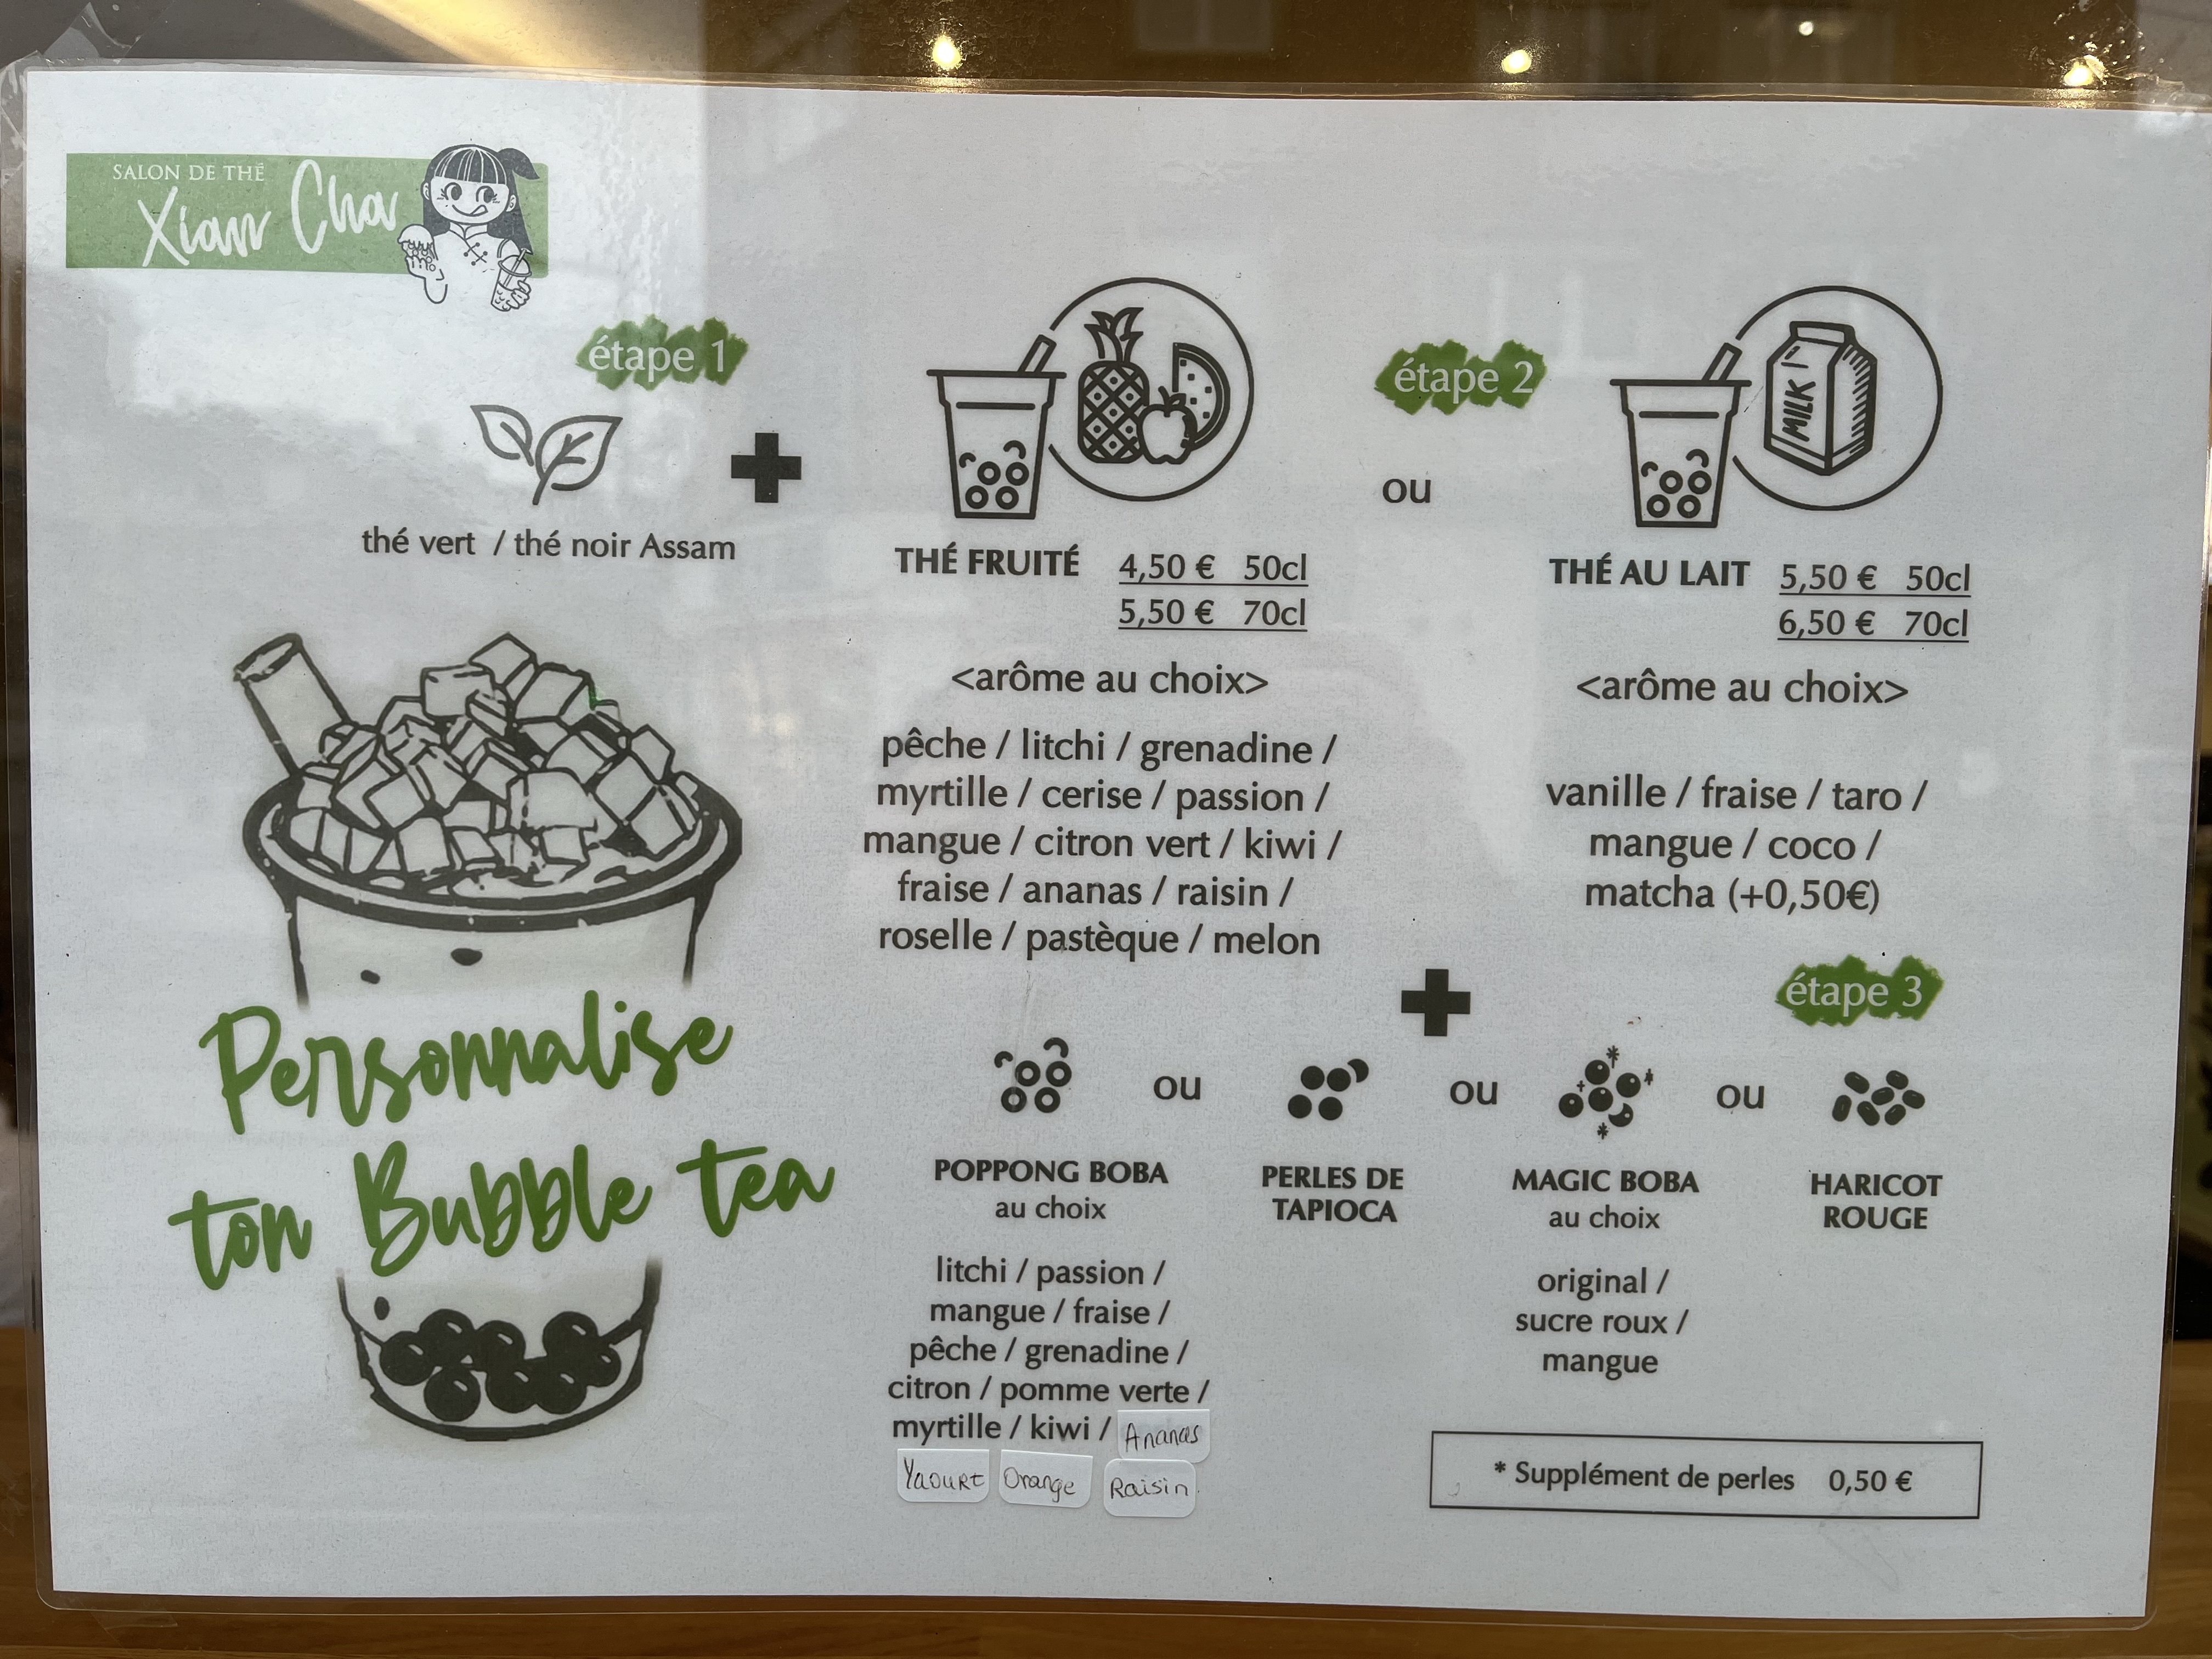 SALON DE THÉ
Xian Cha
étape 1
thé vert / thé noir Assam
THÉ FRUITÉ 4,50 € 50cl
5,50 € 70cl
<arôme au choix>
pêche / litchi / grenadine /
myrtille / cerise / passion /
mangue / citron vert / kiwi /
fraise / ananas / raisin /
roselle / pastèque / melon
étape 2
ou
MILK
THÉ AU LAIT 5,50 € 50cl
6,50 € 70cl
<arôme au choix>
vanille / fraise / taro /
mangue / coco /
matcha (+0,50€)
Personnalise
ton Bubble tea
étape 3
ou ou ou
POPPONG BOBA
au choix
litchi / passion /
mangue / fraise /
pêche / grenadine /
citron / pomme verte /
myrtille / kiwi / Ananas
Yaourt Orange Raisin
PERLES DE
TAPIOCA
MAGIC BOBA
au choix
original /
sucre roux /
mangue
HARICOT
ROUGE
* Supplément de perles 0,50 €